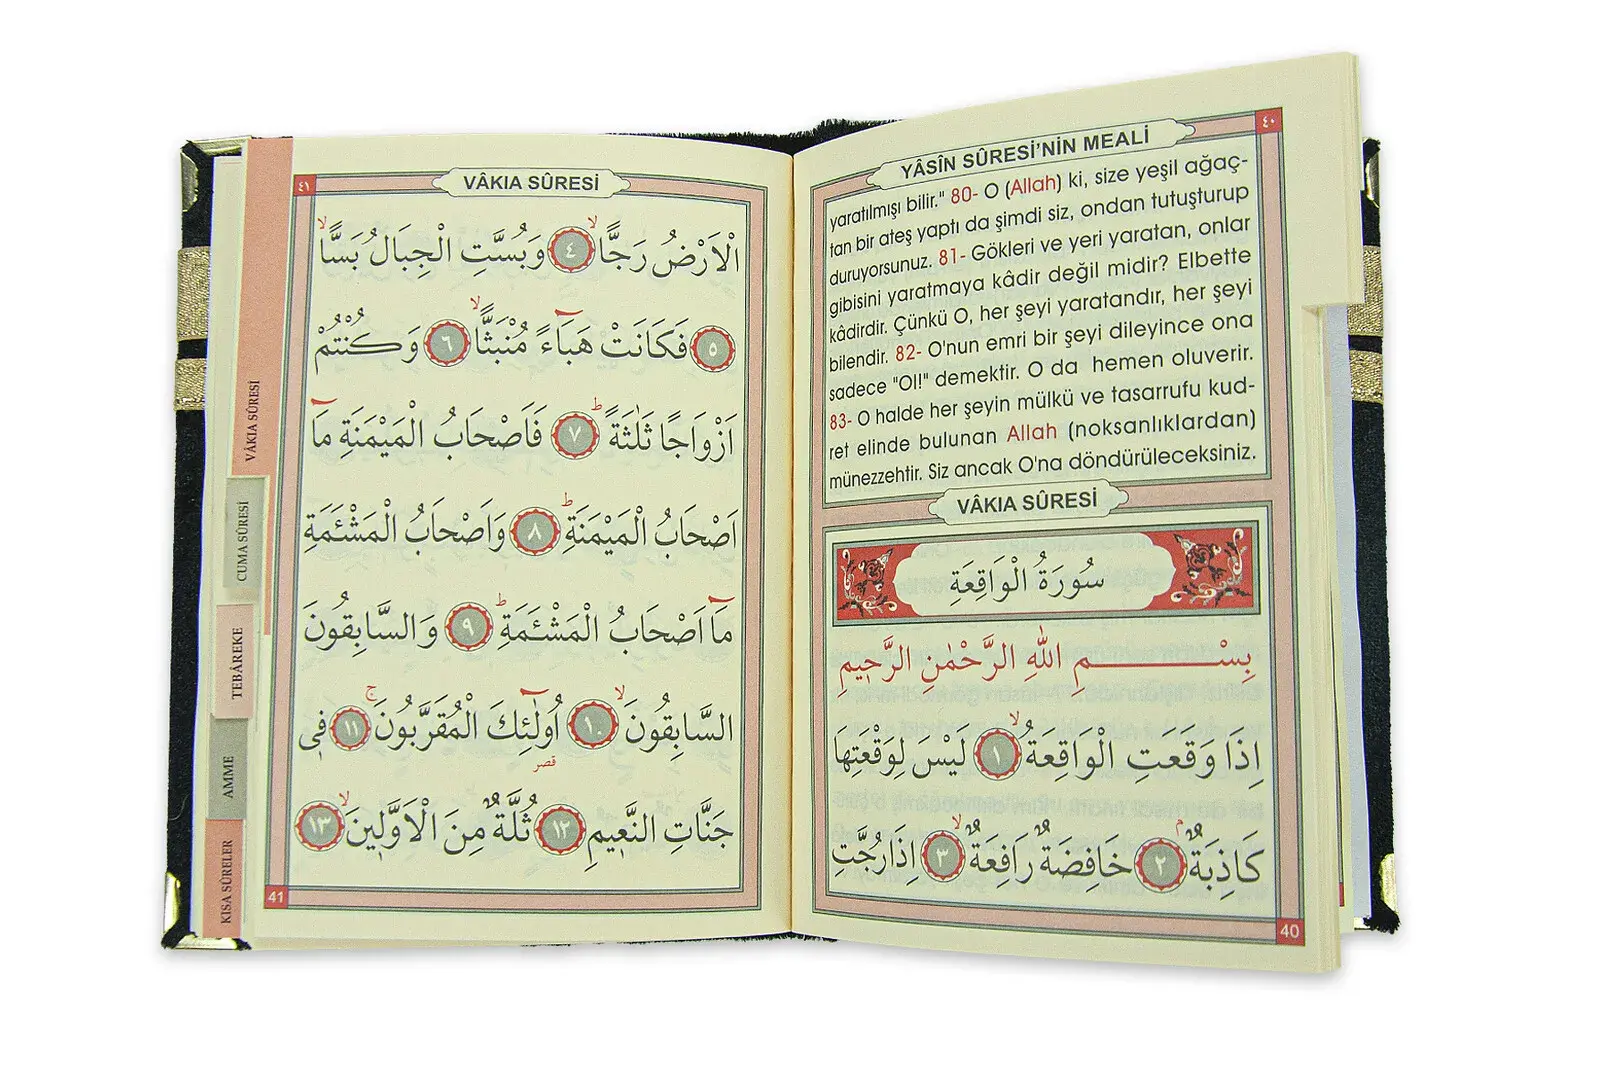 ٤٠
YÂSÎN SÛRESİ'NİN MEALİ
yaratılmışı bilir." 80- O (Allah) ki, size yeşil ağaç-
tan bir ateş yaptı da şimdi siz, ondan tutuşturup
duruyorsunuz. 81- Gökleri ve yeri yaratan, onlar
gibisini yaratmaya kâdir değil midir? Elbette
kâdirdir. Çünkü O, her şeyi yaratandır, her şeyi
bilendir. 82- O'nun emri bir şeyi dileyince ona
sadece "Ol!" demektir. O da hemen oluverir.
83- O halde her şeyin mülkü ve tasarrufu kud-
ret elinde bulunan Allah (noksanlıklardan)
münezzehtir. Siz ancak O'na döndürüleceksiniz.
VÂKIA SÛRESİ
سُورَةُ الْوَاقِعَةِ
بِسْمِ اللّٰهِ الرَّحْمٰنِ الرَّحِيمِ
اِذَا وَقَعَتِ الْوَاقِعَةُۙ ﴿١﴾ لَيْسَ لِوَقْعَتِهَا
كَاذِبَةٌۢ ﴿٢﴾ خَافِضَةٌ رَافِعَةٌۙ ﴿٣﴾ اِذَا رُجَّتِ
40
٤١
VÂKIA SÛRESİ
الْاَرْضُ رَجًّاۙ ﴿٤﴾ وَبُسَّتِ الْجِبَالُ بَسًّاۙ
﴿٥﴾ فَكَانَتْ هَبَٓاءً مُنْبَثًّاۙ ﴿٦﴾ وَكُنْتُمْ
اَزْوَاجًا ثَلٰثَةًۜ ﴿٧﴾ فَاَصْحَابُ الْمَيْمَنَةِ مَٓا
اَصْحَابُ الْمَيْمَنَةِۜ ﴿٨﴾ وَاَصْحَابُ الْمَشْـَٔمَةِ
مَٓا اَصْحَابُ الْمَشْـَٔمَةِۜ ﴿٩﴾ وَالسَّابِقُونَ
السَّابِقُونَۙ ﴿١٠﴾ اُو۬لٰٓئِكَ الْمُقَرَّبُونَۚ ﴿١١﴾ فٖي
قصر
جَنَّاتِ النَّعٖيمِ ﴿١٢﴾ ثُلَّةٌ مِنَ الْاَوَّلٖينَۙ ﴿١٣﴾
41
VÂKIA SÛRESİ
CUMA SÛRESİ
TEBÂREKE
AMME
KISA SÛRELER